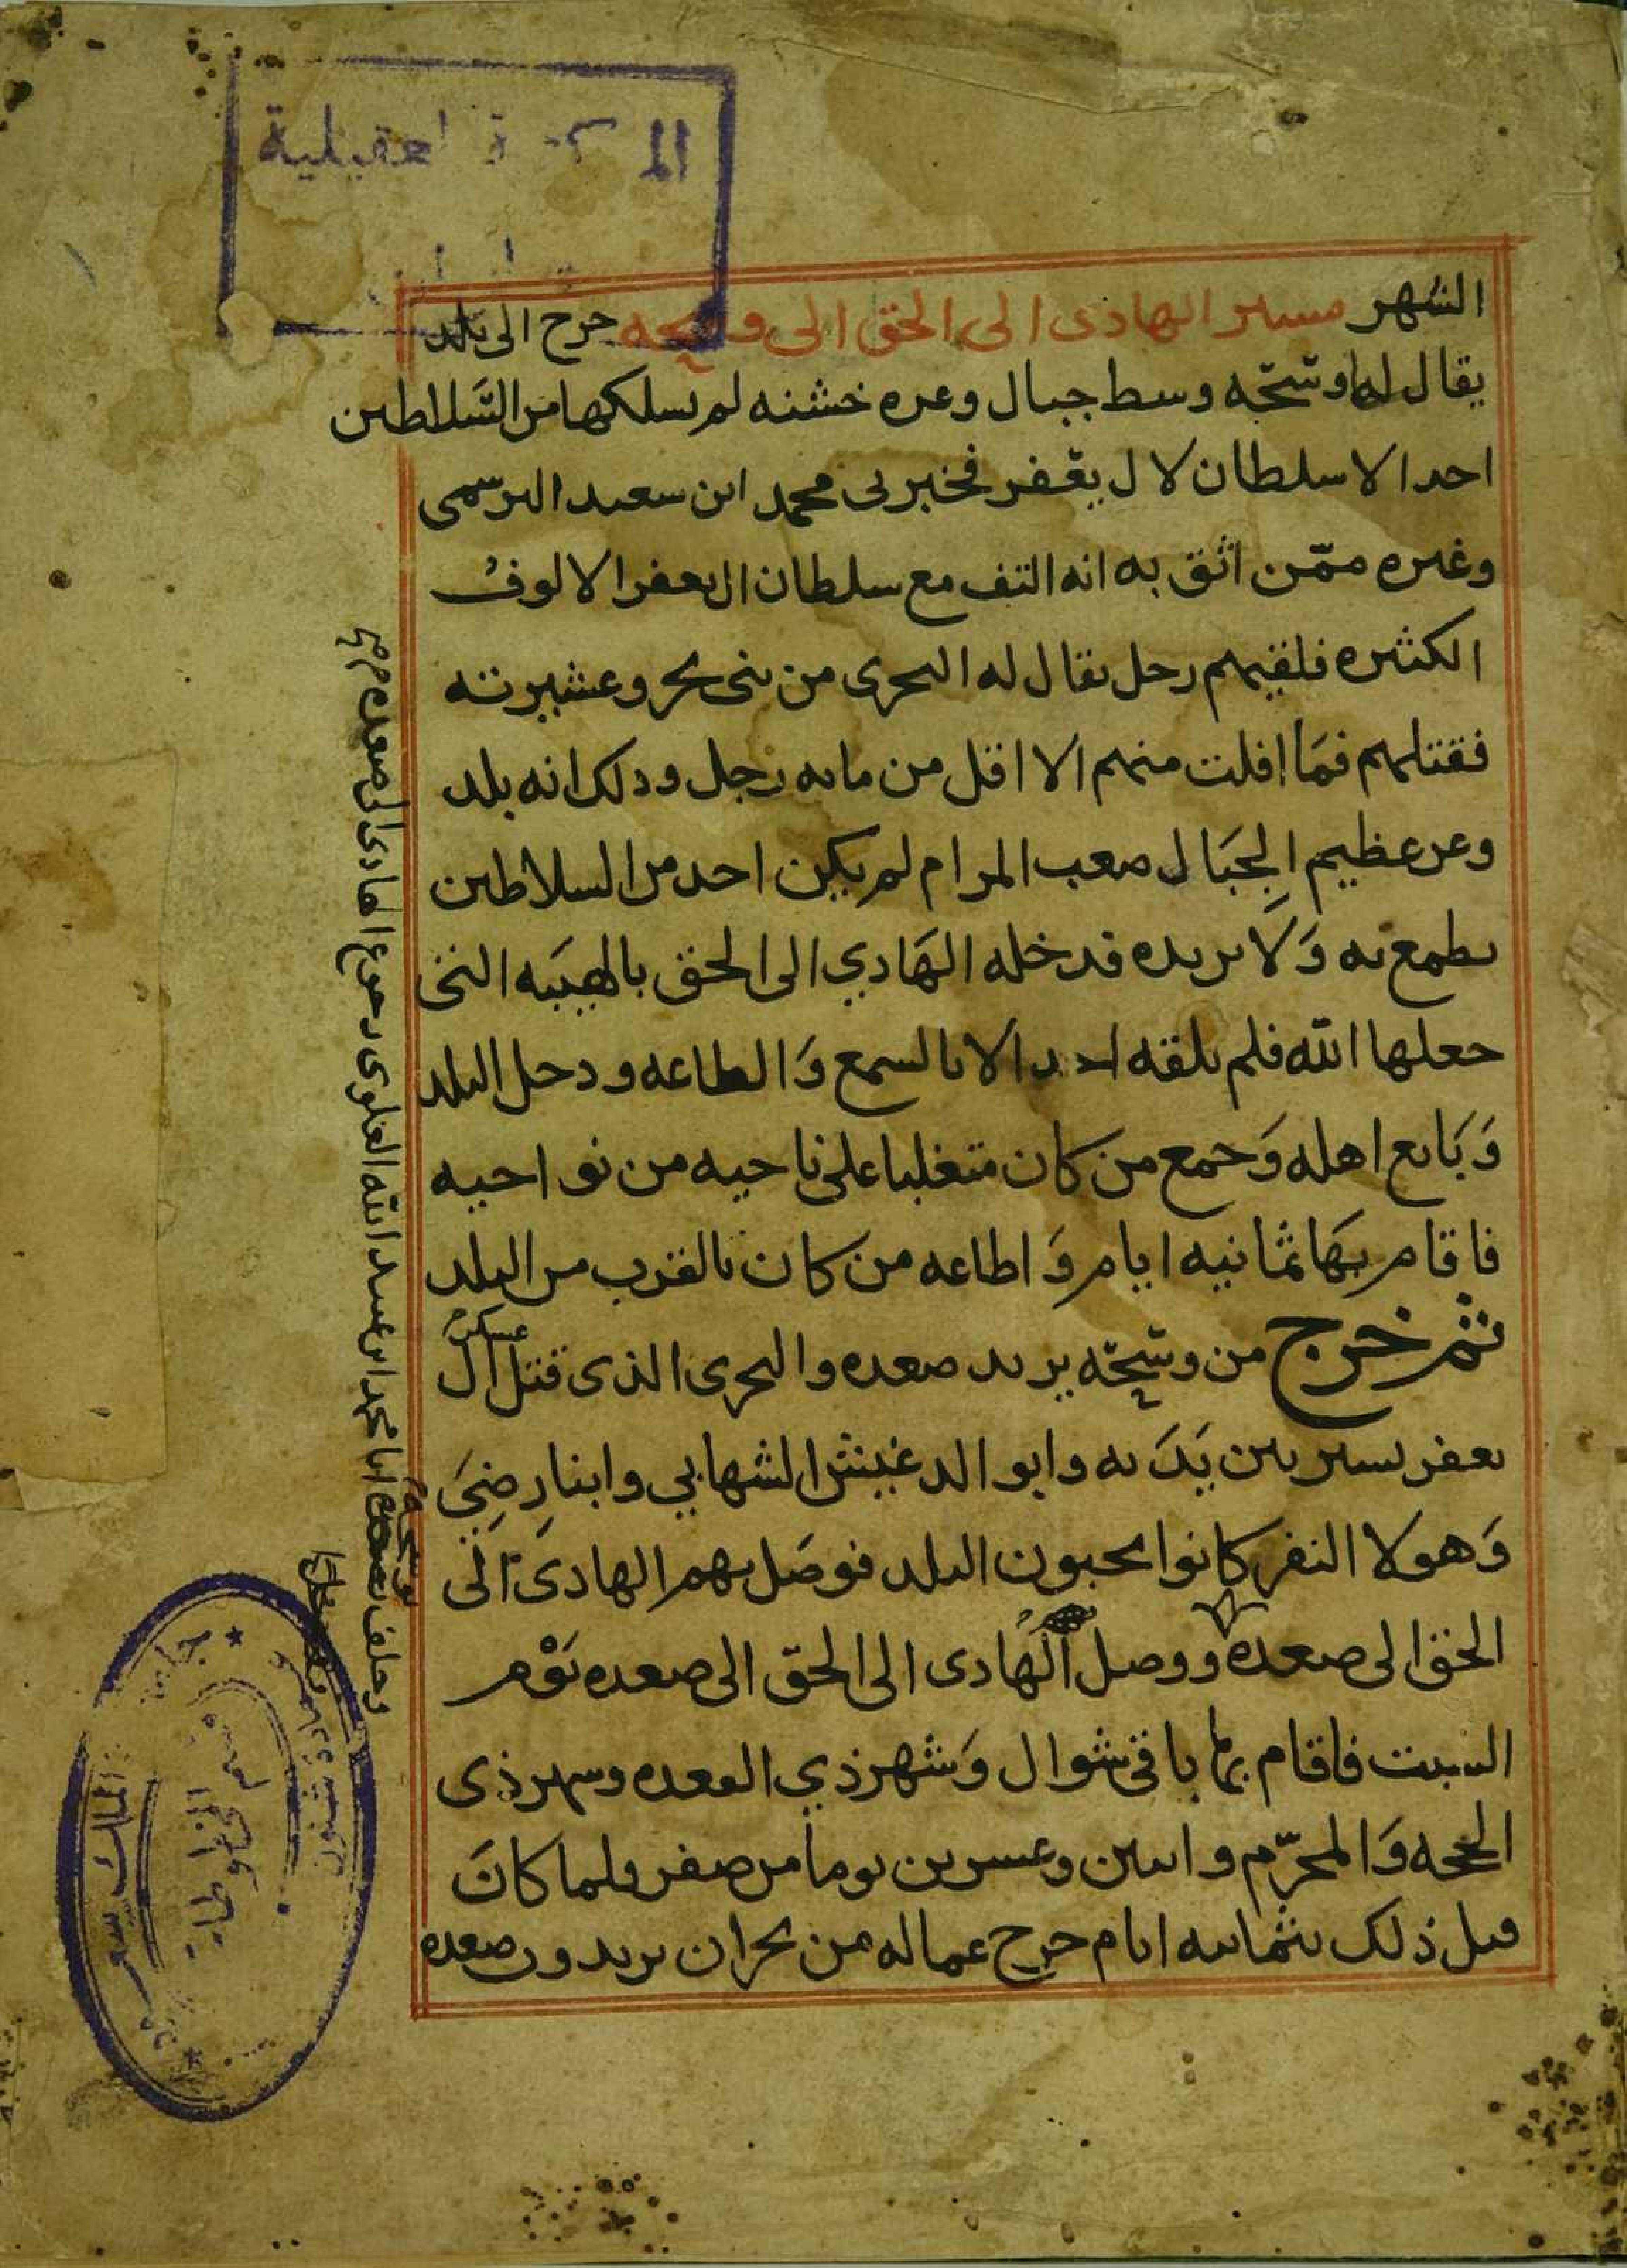 الشهر مسير الهادى الى الحق الى وشحه خرج الى بلد
يقال لها وشحّه وسط جبال وعره خشنه لم يسلكها من السّلاطين
احد الا سلطان لال يعفر فخبرنى محمد ابن سعيد اليرسمى
وغيره ممّن اثق به انه التف مع سلطان ال يعفر الالوف
الكثيره فلقيهم رجل يقال له البحرى من بنى بحر وعشيرته
فقتلهم فمَا افلت منهم الا اقل من مايه رجل وذلك انه بلد
وعر عظيم الجبَال صعب المرام لم يكن احد من السلاطين
يطمع به وَلا يريده فدخله الهَادي الى الحق بالهيبَه التى
جعلها الله فلم يلقه احد الا بالسمع وَالطاعه ودخل البلد
وَبَايع اهله وَجمع من كان متغلبا على ناحيه من نواحيه
فاقام بهَا ثمَانيه ايام وَاطاعه من كان بالقرب من البلد
ثم خرج من وشحّه يريد صعده والبحرى الذى قتل عسكر ال
يعفر يسير بين يَدَيه وابو الدغيش الشهابي وابنا رضِيَ
وَهولا النفر كانوا يجبون البلد فوصَل بهم الهادىَ الَى
الحق الى صعده ووصل الهَادى الى الحقّ الى صعده يَوْم
السبت فاقام بها باقى شوال وَشهر ذي القعده وشهر ذى
الحجه وَالمحرّم واثنين وعشرين يوما من صفر فلما كانَ
قبل ذلك بثمانيه ايام خرج عماله من نجران يريدون صعده
رجوع الهادى الى صعده
وخلف بوشحة ابا محمد ابن عبد الله العلوى
جامعة الملك سعود
قسم المخطوطات